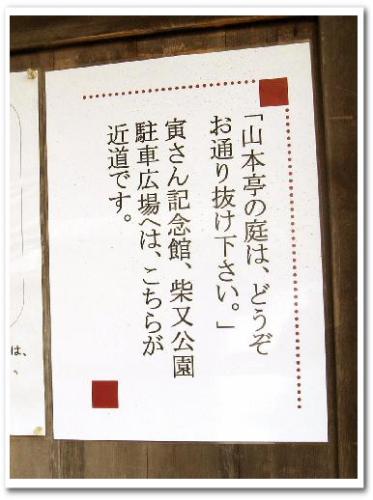 「山本亭の庭は、どうぞ
お通り抜け下さい。」
寅さん記念館、柴又公園
駐車広場へは、こちらが
近道です。
は、